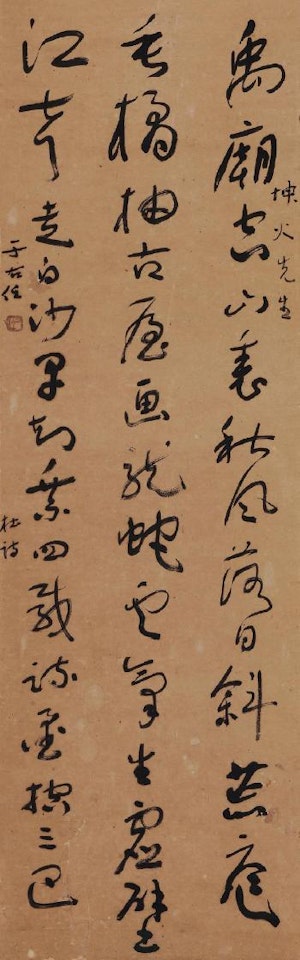 坤火先生
禹廟空山裏秋風落日斜荒庭
垂橘柚古屋画龍蛇雲氣生虛壁
江聲走白沙早知乘四載疏鑿控三巴
杜詩
于右任